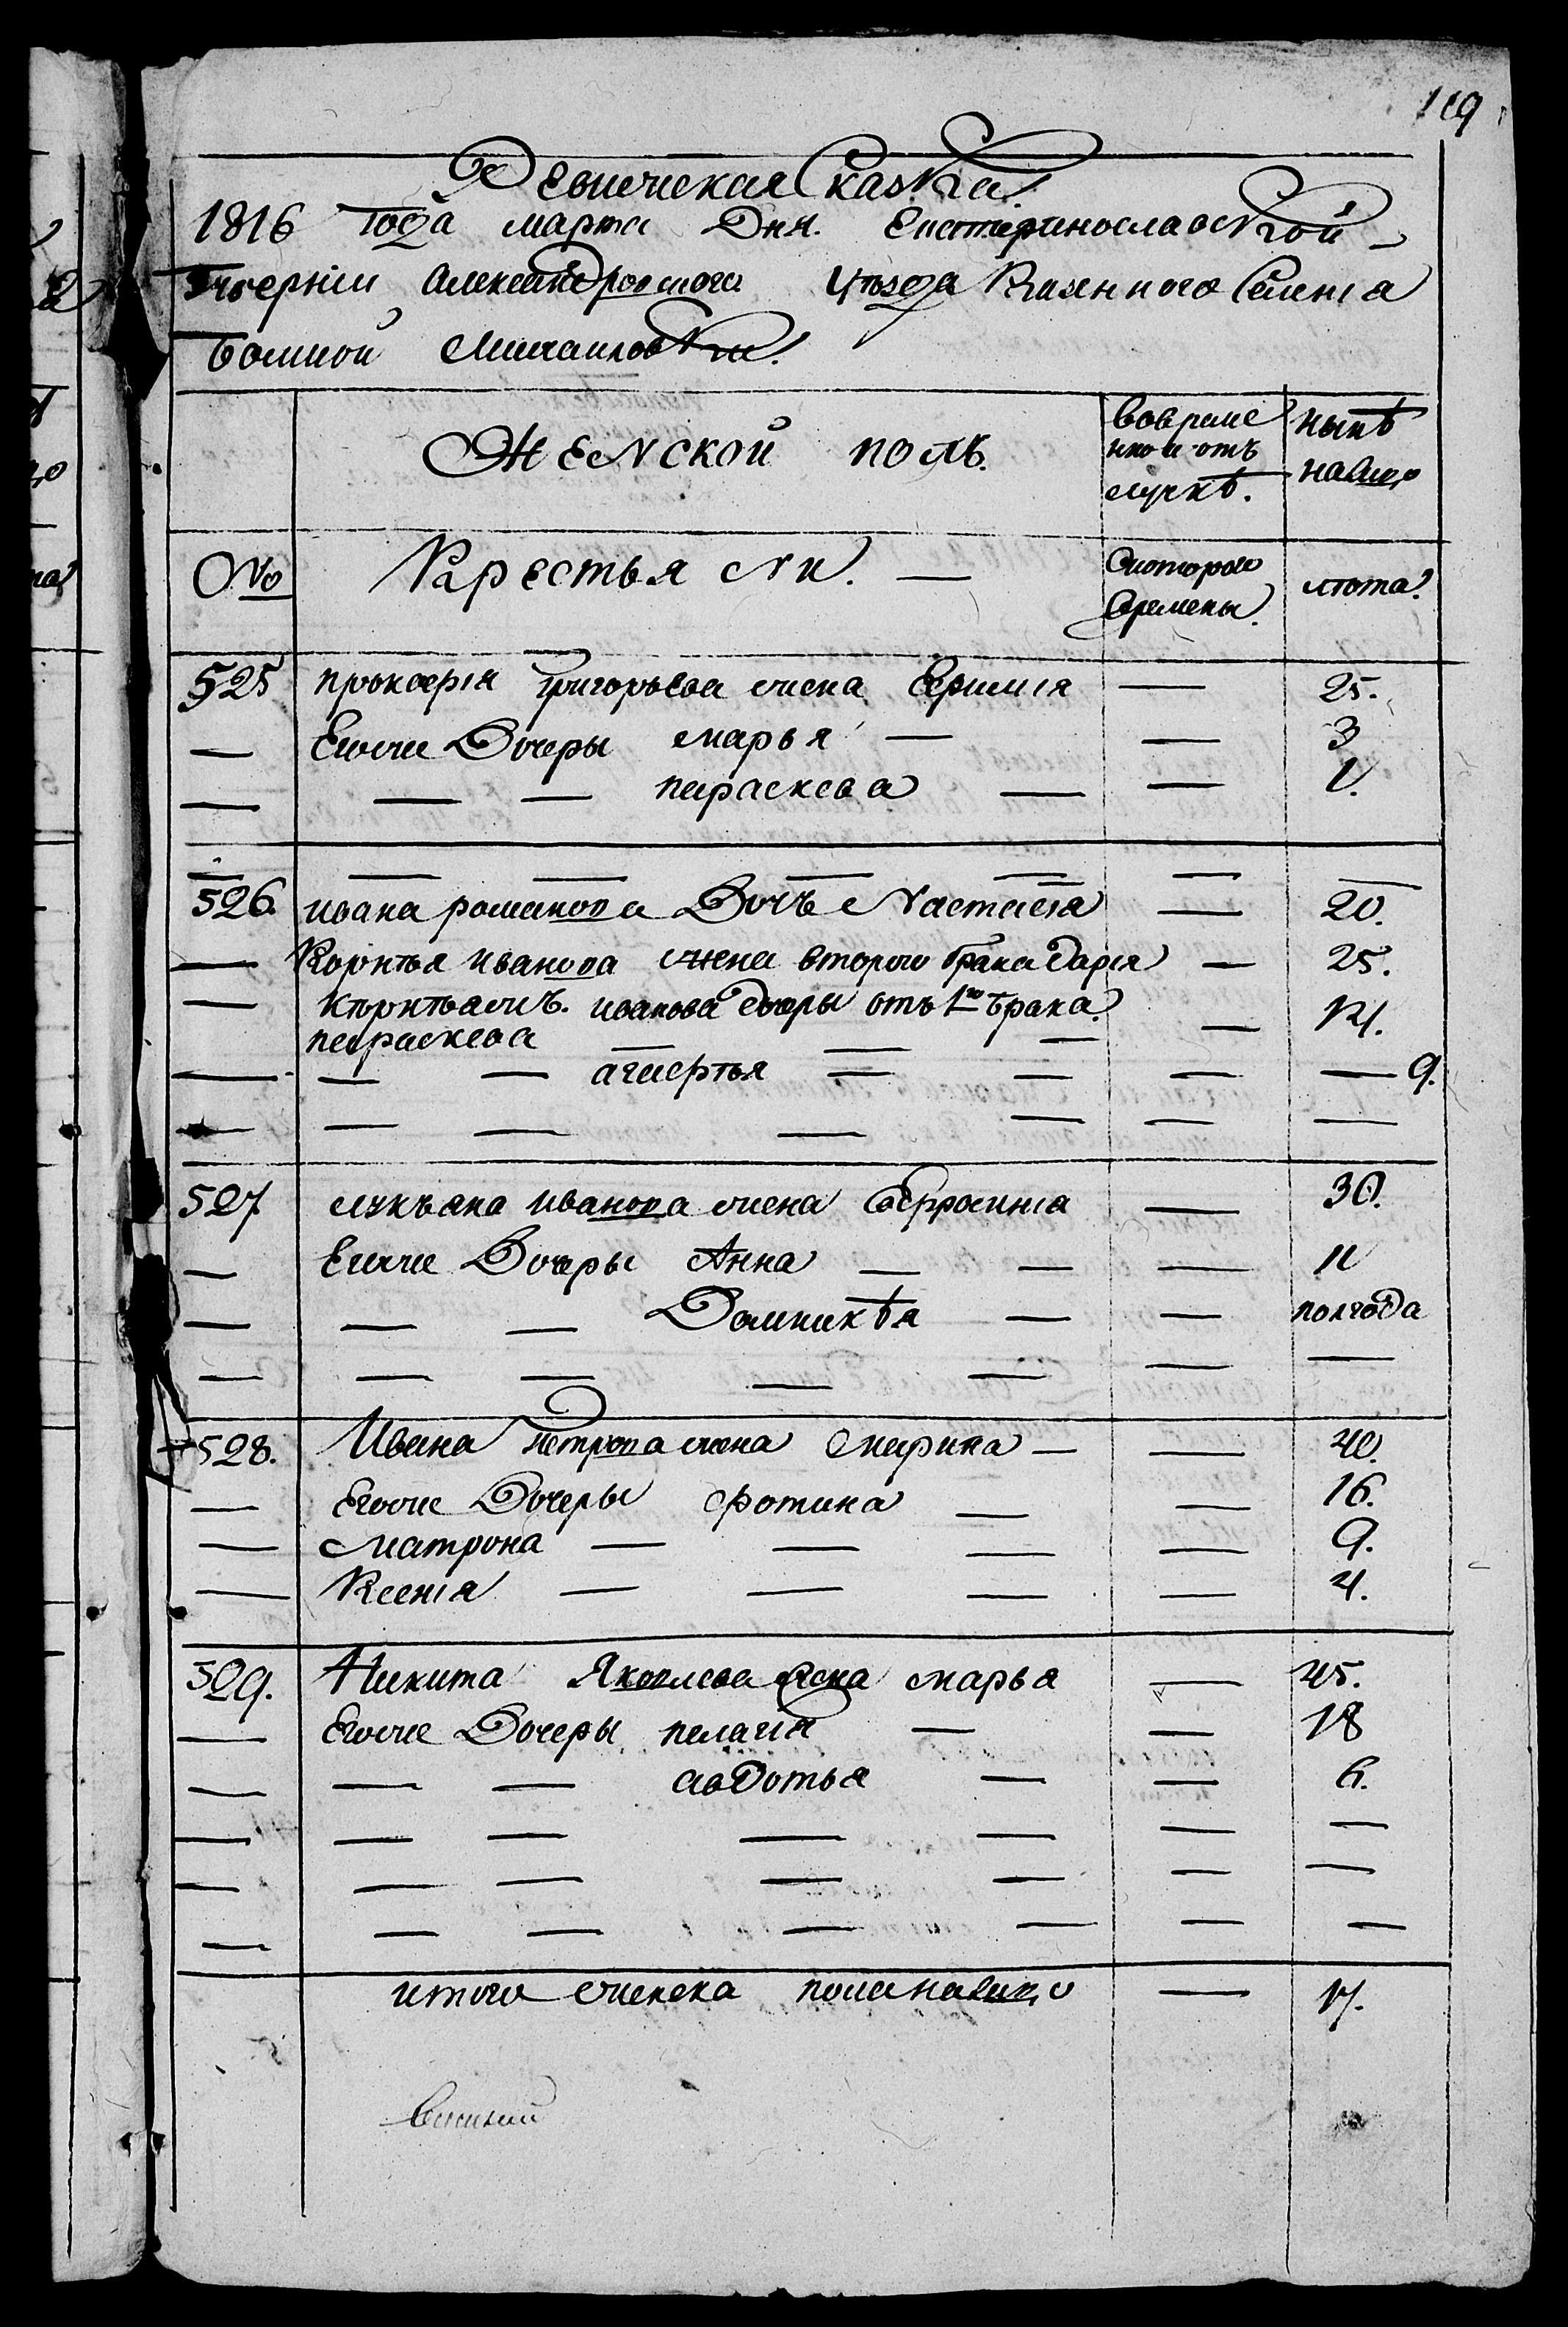 119
Ревическая Сказка.
1816 года марта Дня. Екатеринославской
Губерніи Александровскога Уѣзда Казеннога Селенія
Болшой Михаиловки.
Женской полъ.
Вовреме
нной отъ
лучкѣ.
нынѣ
налицо
№
Крестьяни.
Скоторога
Времены.
лѣта.
525 прокофія григорьева жена Ефимія — 25.
— Егоже Дочеры марья — — 3
— — — параскева — — 1.
526. ивана романова Дочь Настасія — 20.
— Корнѣя иванова жена второго брака дарія — 25.
— Корнѣяжъ. иванова дочеры отъ 1го брака.
параскева — 14.
— — — агафья — — — — 9.
527 лукъяна иванова жена Ефросинія — 30.
— Егоже Дочеры Анна — — — 11
— — — Домникѣя — — полгода
528. Ивана петрова жена Марина — — 40.
— Егоже Дочеры фотина — — 16.
— Матрона — — — — 9.
— Ксенія — — — — 4.
529. Никита Яковлева жена марья — 45.
— Егоже Дочеры пелагія — — 18
— — — авдотья — — 6.
итого женска пола налицо — 17.